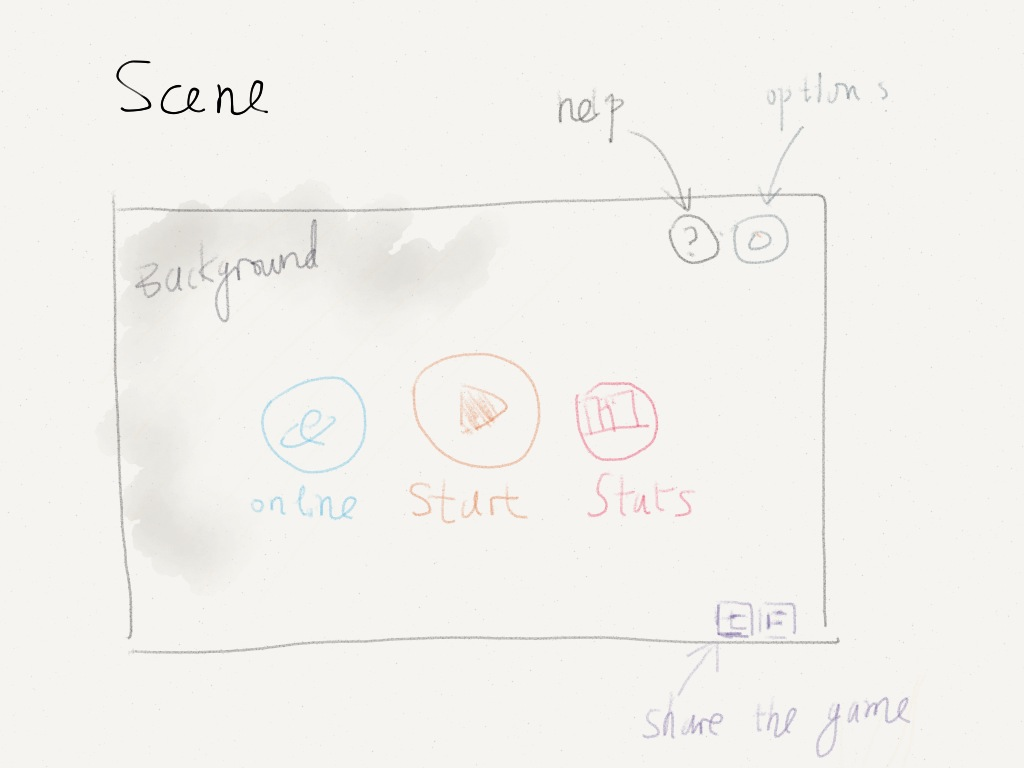 Scene
help
options
Background
?
online
Start
Stats
t F
share the game